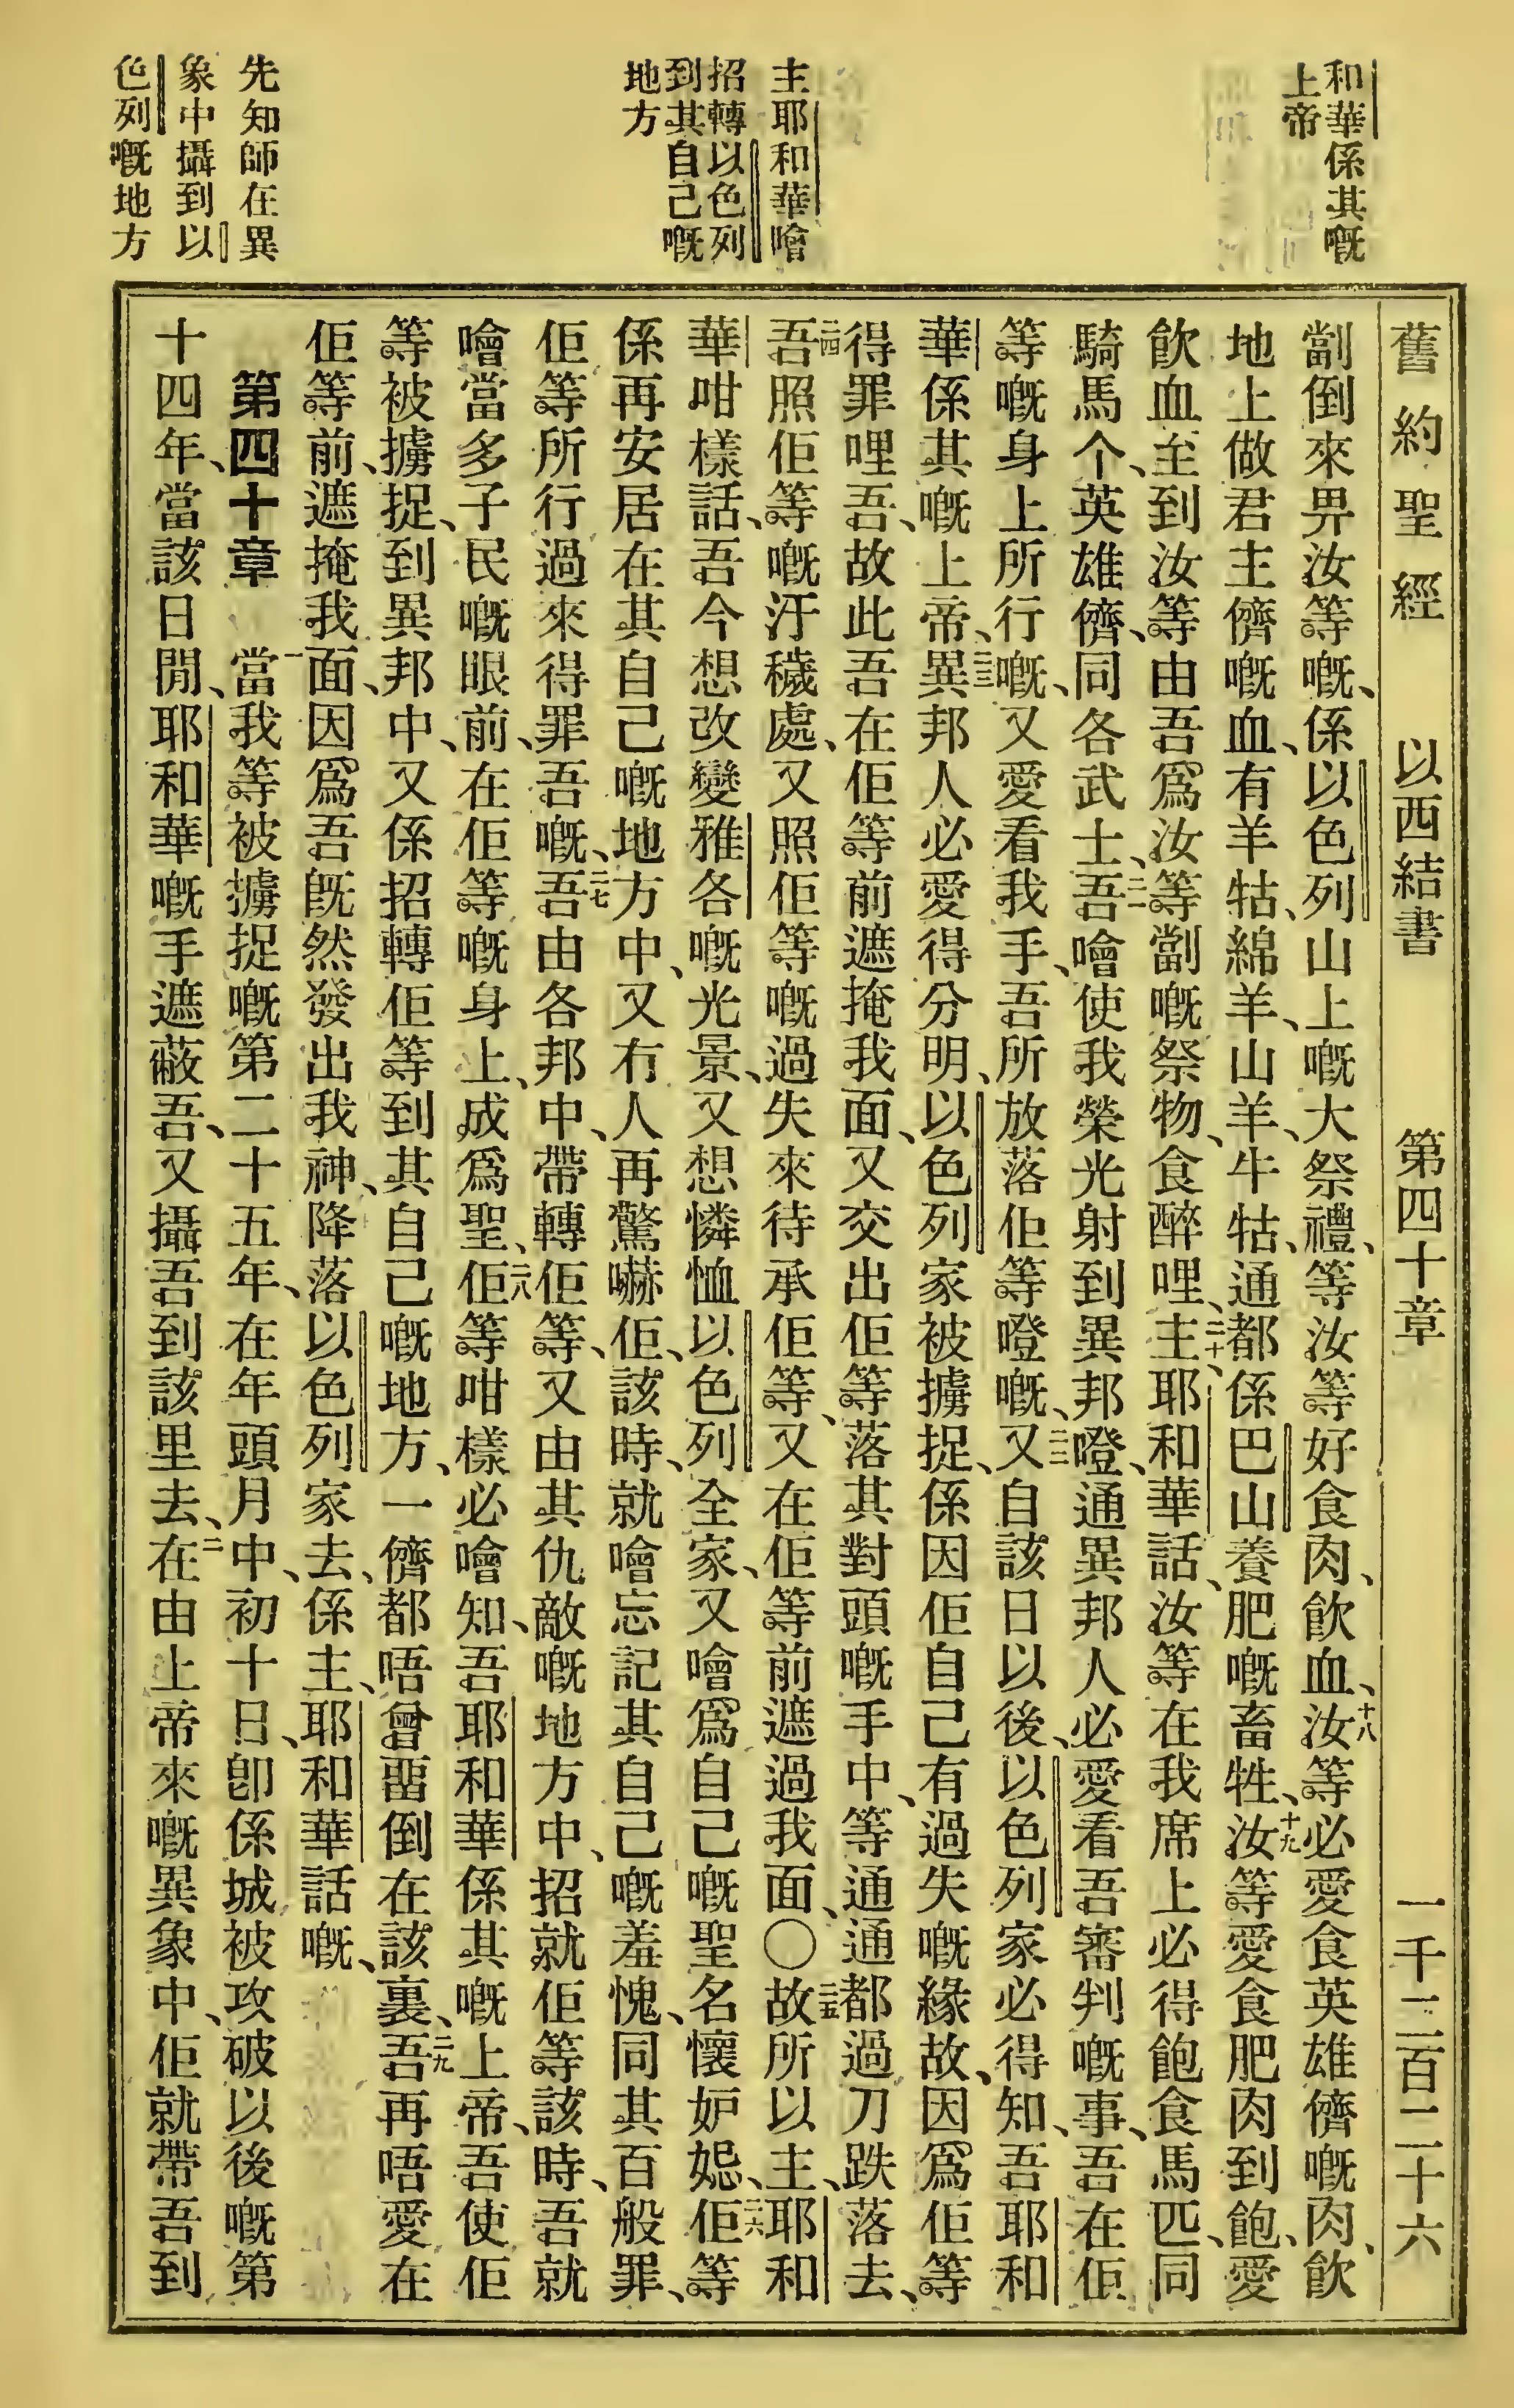 和華係其嘅
上帝
主耶和華噲
招轉以色列
到其自己嘅
地方
先知師在異
象中攝到以
色列嘅地方
舊約聖經 以西結書 第四十章 一千二百二十六
劏倒來畀汝等嘅、係以色列山上嘅大祭禮、等汝等好食肉、飮血、十八汝等必愛食英雄儕嘅肉、飮
地上做君主儕嘅血、有羊牯、綿羊、山羊、牛牯、通都係巴山養肥嘅畜牲、十九汝等愛食肥肉到飽、愛
飮血至到汝等由吾爲汝等劏嘅祭物、食醉哩、二十主耶和華話、汝等在我席上必得飽食馬匹、同
騎馬个、英雄儕、同各武士、二一吾噲使我榮光射到異邦、噔通異邦人必愛看吾審判嘅事、吾在佢
等嘅身上所行嘅、又愛看我手、吾所放落佢等噔嘅、二二又自該日以後、以色列家必得知、吾耶和
華係其嘅上帝、二三異邦人必愛得分明、以色列家被擄捉、係因佢自己有過失嘅緣故、因爲佢等
得罪哩吾、故此吾在佢等前遮掩我面、又交出佢等落其對頭嘅手中、等通通都過刀跌落去、
二四吾照佢等嘅汙穢處、又照佢等嘅過失來待承佢等、又在佢等前遮過我面、〇二五故所以主、耶和
華咁樣話、吾今想改變雅各嘅光景、又想憐恤以色列全家、又噲爲自己嘅聖名懷妒𡝗、二六佢等
係再安居在其自己嘅地方中、又冇人再驚嚇佢、該時、就噲忘記其自己嘅羞愧、同其百般罪、
佢等所行過來得罪吾嘅、二七吾由各邦中、帶轉佢等、又由其仇敵嘅地方中、招就佢等該時、吾就
噲當多子民嘅眼前、在佢等嘅身上、成爲聖、二八佢等咁樣必噲知、吾耶和華係其嘅上帝、吾使佢
等被擄捉、到異邦中、又係招轉佢等到其自己嘅地方、一儕都唔曾畱倒在該裏、二九吾再唔愛在
佢等前、遮掩我面、因爲吾旣然發出我神、降落以色列家去、係主、耶和華話嘅、
第四十章 一當我等被擄捉嘅第二十五年、在年頭月中、初十日、卽係城被攻破以後嘅第
十四年、當該日閒、耶和華嘅手遮蔽吾、又攝吾到該里去、二在由上帝來嘅異象中、佢就帶吾到